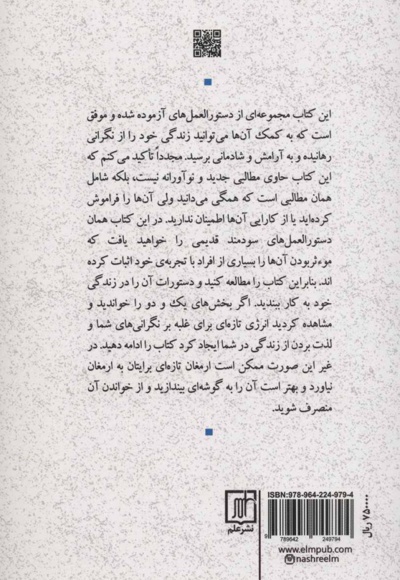 این کتاب مجموعه‌ای از دستورالعمل‌های آزموده شده و موفق
است که به کمک آن‌ها می‌توانید زندگی خود را از نگرانی
رهانیده و به آرامش و شادمانی برسید. مجدداً تأکید می‌کنم که
این کتاب حاوی مطالبی جدید و نوآورانه نیست، بلکه شامل
همان مطالبی است که همگی می‌دانید ولی آن‌ها را فراموش
کرده‌اید یا از کارایی آن‌ها اطمینان ندارید. در این کتاب همان
دستورالعمل‌های سودمند قدیمی را خواهید یافت که
موءثربودن آن‌ها را بسیاری از افراد با تجربه‌ی خود اثبات کرده
اند. بنابراین کتاب را مطالعه کنید و دستورات آن را در زندگی
خود به کار ببندید. اگر بخش‌های یک و دو را خواندید و
مشاهده کردید انرژی تازه‌ای برای غلبه بر نگرانی‌های شما و
لذت بردن از زندگی در شما ایجاد کرد کتاب را ادامه دهید. در
غیر این صورت ممکن است ارمغان تازه‌ای برایتان به ارمغان
نیاورد و بهتر است آن را به گوشه‌ای بیندازید و از خواندن آن
منصرف شوید.
ISBN:978-964-224-979-4
9 789642 249794
نشر علم
www.elmpub.com
@nashreelm
۷۵۰۰۰۰ ریال